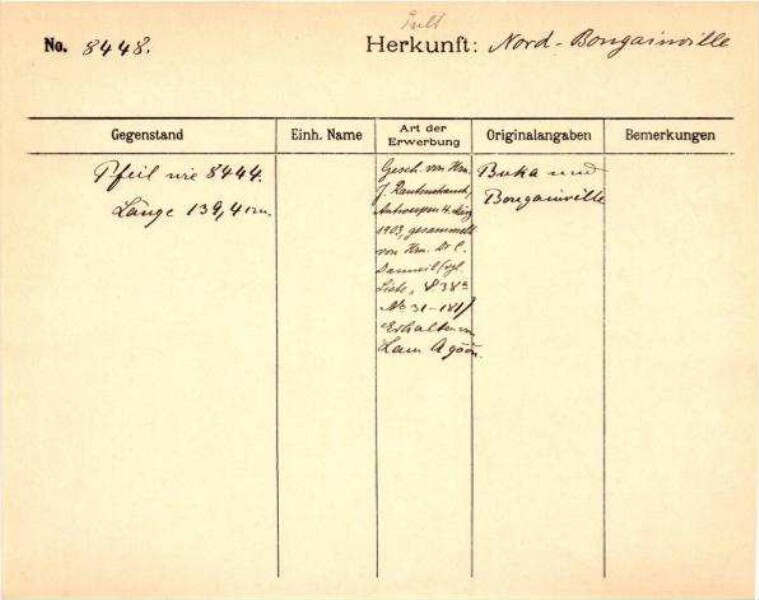 No. 8448.
Herkunft: Nord-Bougainville
Gegenstand
Einh. Name
Art der Erwerbung
Originalangaben
Bemerkungen
Pfeil wie 8444.
Länge 139,4 cm.
Gesch. von Hrn.
J. Rautenstrauch,
Antwerpen 4. März
1903, gesammelt
von Hrn. Dr C.
Danneil (vgl.
Liste,
No 31-181)
Erhalten von
Lam Agöön.
Buka und
Bougainville